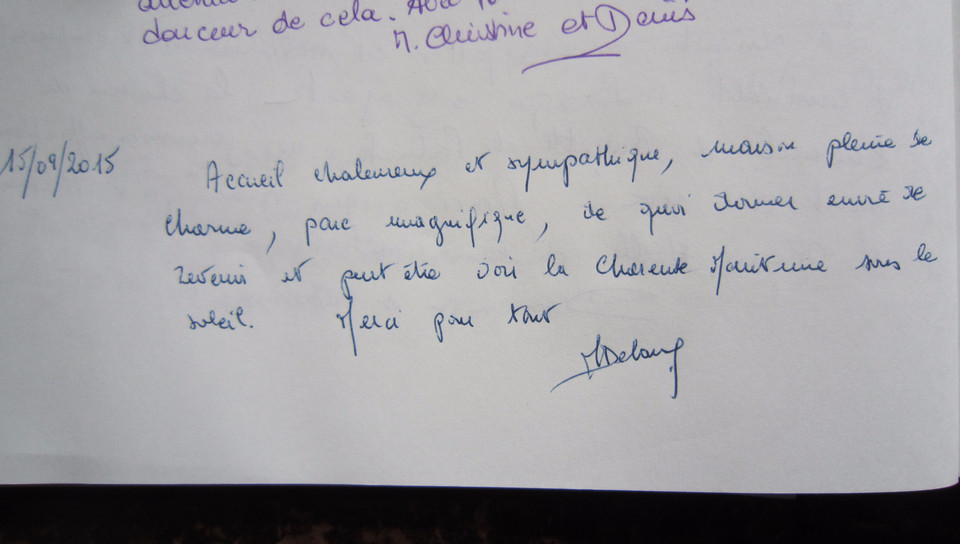 douceur de cela.
M. Christine et Denis
15/09/2015
Accueil chaleureux et sympathique, maison pleine de
charme, parc magnifique, de quoi donner envie de
revenir et peut être voir la Charente Maritime sous le
soleil. Merci pour tout